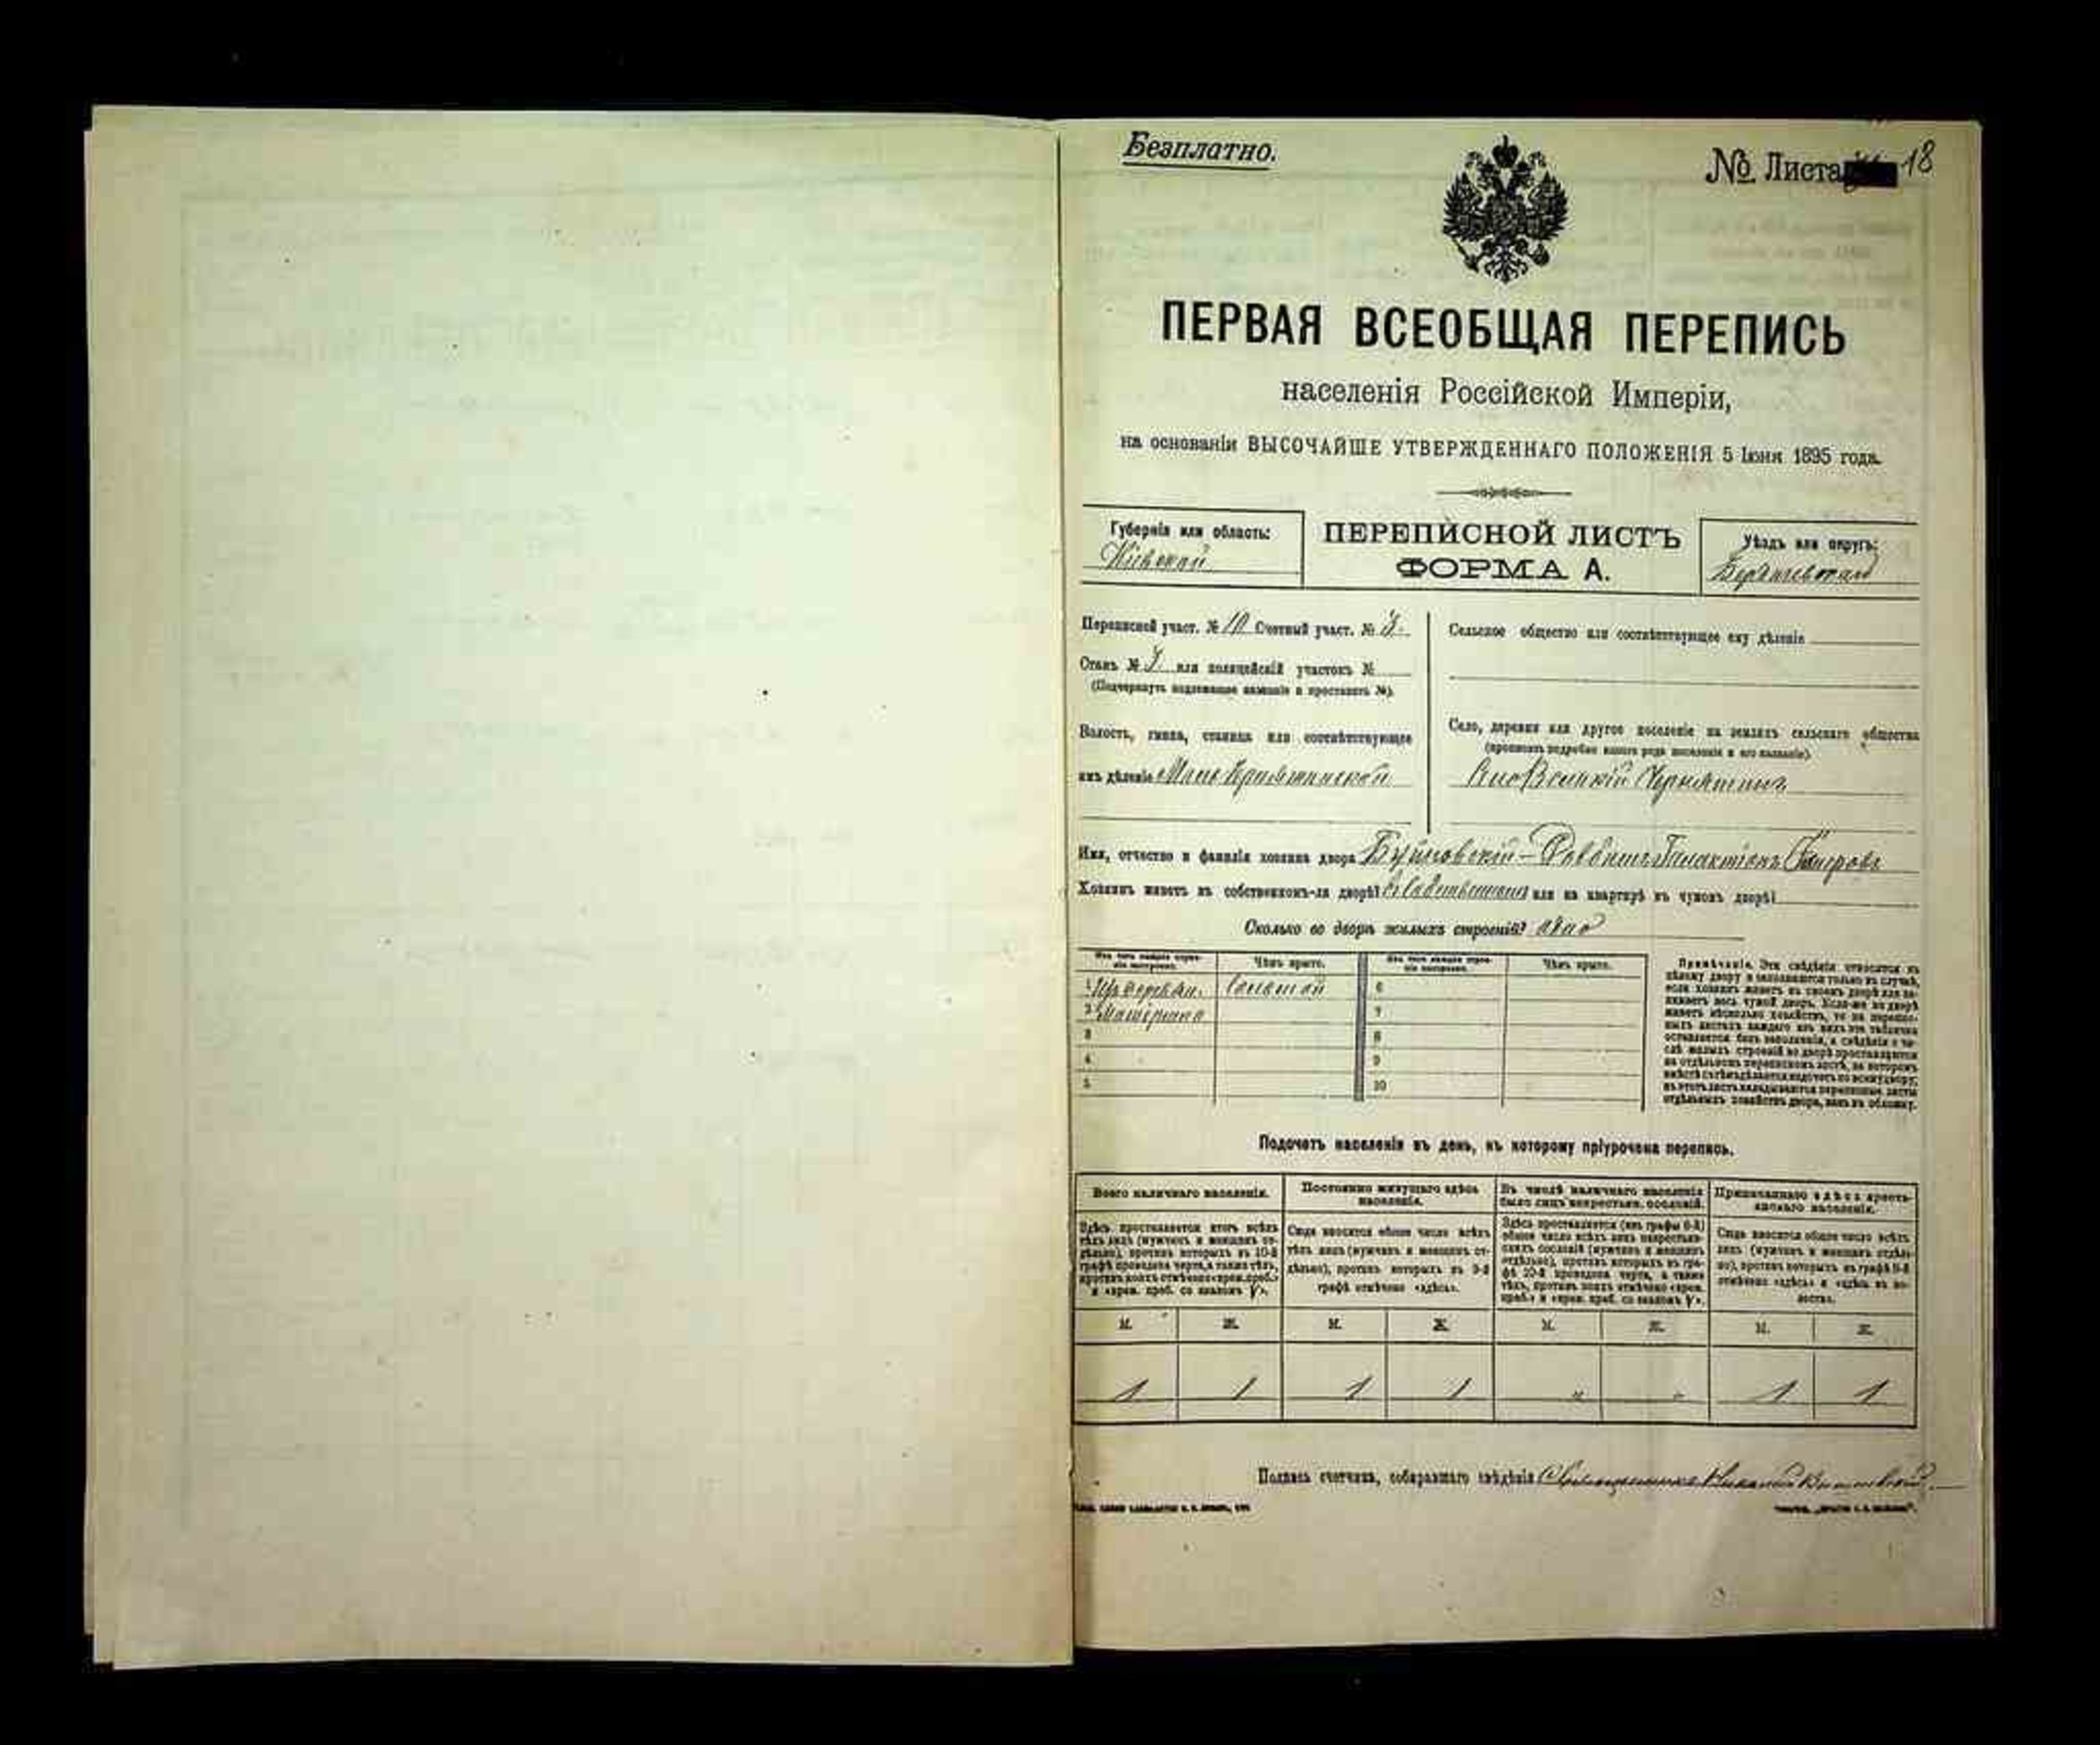 Безплатно.
№ Листа 18
ПЕРВАЯ ВСЕОБЩАЯ ПЕРЕПИСЬ
населенія Россійской Имперіи,
на основаніи ВЫСОЧАЙШЕ УТВЕРЖДЕННАГО ПОЛОЖЕНІЯ 5 Іюня 1895 года.
Губернія или область:
Кіевской
ПЕРЕПИСНОЙ ЛИСТЪ
ФОРМА А.
Уѣздъ или округъ:
Бердичевскаго
Переписной участ. № 10 Счетный участ. № 3.
Станъ № 3 или полицейскій участокъ №
(Подчеркнуть надлежащее названіе и проставить №).
Волость, гмина, станица или соотвѣтствующее
имъ дѣленіе
Сельское общество или соотвѣтствующее ему дѣленіе
Село, деревня или другое поселеніе на земляхъ сельскаго общества
(прописать подробно какого рода поселеніе и его названіе).
Село Великій Чернятинъ
Имя, отчество и фамилія хозяина двора Буйновскій – Галактіонъ
Хозяинъ живетъ въ собственномъ-ли дворѣ? въ собственномъ или на квартирѣ въ чужомъ дворѣ?
Сколько во дворѣ жилыхъ строеній? одно
Изъ чего каждое строеніе построено.
Чѣмъ крыто.
Изъ чего каждое строеніе построено.
Чѣмъ крыто.
1 Изъ деревян. Соломой 6
2 матеріала 7
3 8
4 9
5 10
Примѣчаніе. Эти свѣдѣнія относятся къ
цѣлому двору и заполняются только въ случаѣ,
если хозяинъ живетъ въ своемъ дворѣ или за-
нимаетъ весь чужой дворъ. Если-же во дворѣ
живетъ нѣсколько хозяйствъ, то на перепис-
ныхъ листахъ каждаго изъ нихъ эта табличка
оставляется безъ заполненія, а свѣдѣнія о чи-
слѣ жилыхъ строеній во дворѣ проставляются
на отдѣльномъ переписномъ листѣ, на которомъ
вмѣстѣ съ тѣмъ дѣлается подсчетъ по всему двору;
въ этотъ листъ вкладываются переписные листы
отдѣльныхъ хозяйствъ двора, какъ въ обложку.
Подсчетъ населенія въ день, къ которому пріурочена перепись.
Всего наличнаго населенія.
Постоянно живущаго здѣсь
населенія.
Въ числѣ наличнаго населенія
было лицъ некрестьян. сословій.
Приписаннаго здѣсь кресть-
янскаго населенія.
Здѣсь проставляется итогъ всѣхъ
тѣхъ лицъ (мужчинъ и женщинъ от-
дѣльно), противъ которыхъ въ 10-й
графѣ проведена черта, а также тѣхъ,
противъ коихъ отмѣчено «врем. преб.»
и «врем. преб. со знакомъ V».
Сюда вносится общее число всѣхъ
тѣхъ лицъ (мужчинъ и женщинъ от-
дѣльно), противъ которыхъ въ 9-й
графѣ отмѣчено «здѣсь».
Здѣсь проставляется (изъ графы 6-й)
общее число всѣхъ лицъ некрестьян-
скихъ сословій (мужчинъ и женщинъ
отдѣльно), противъ которыхъ въ гра-
фѣ 10-й проведена черта, а также
тѣхъ, противъ коихъ отмѣчено «врем.
преб.» и «врем. преб. со знакомъ V».
Сюда вносится общее число всѣхъ
лицъ (мужчинъ и женщинъ отдѣль-
но), противъ которыхъ въ графѣ 8-й
отмѣчено «здѣсь» и «здѣсь въ во-
лости».
М. Ж. М. Ж. М. Ж. М. Ж.
1 1 1 1 " " 1 1
Подпись счетчика, собиравшаго свѣдѣнія